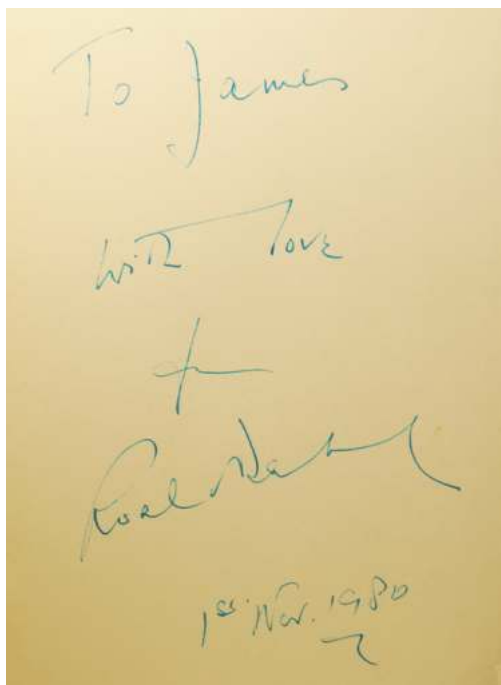 To James
with love
from
Roald Dahl
1st Nov. 1980